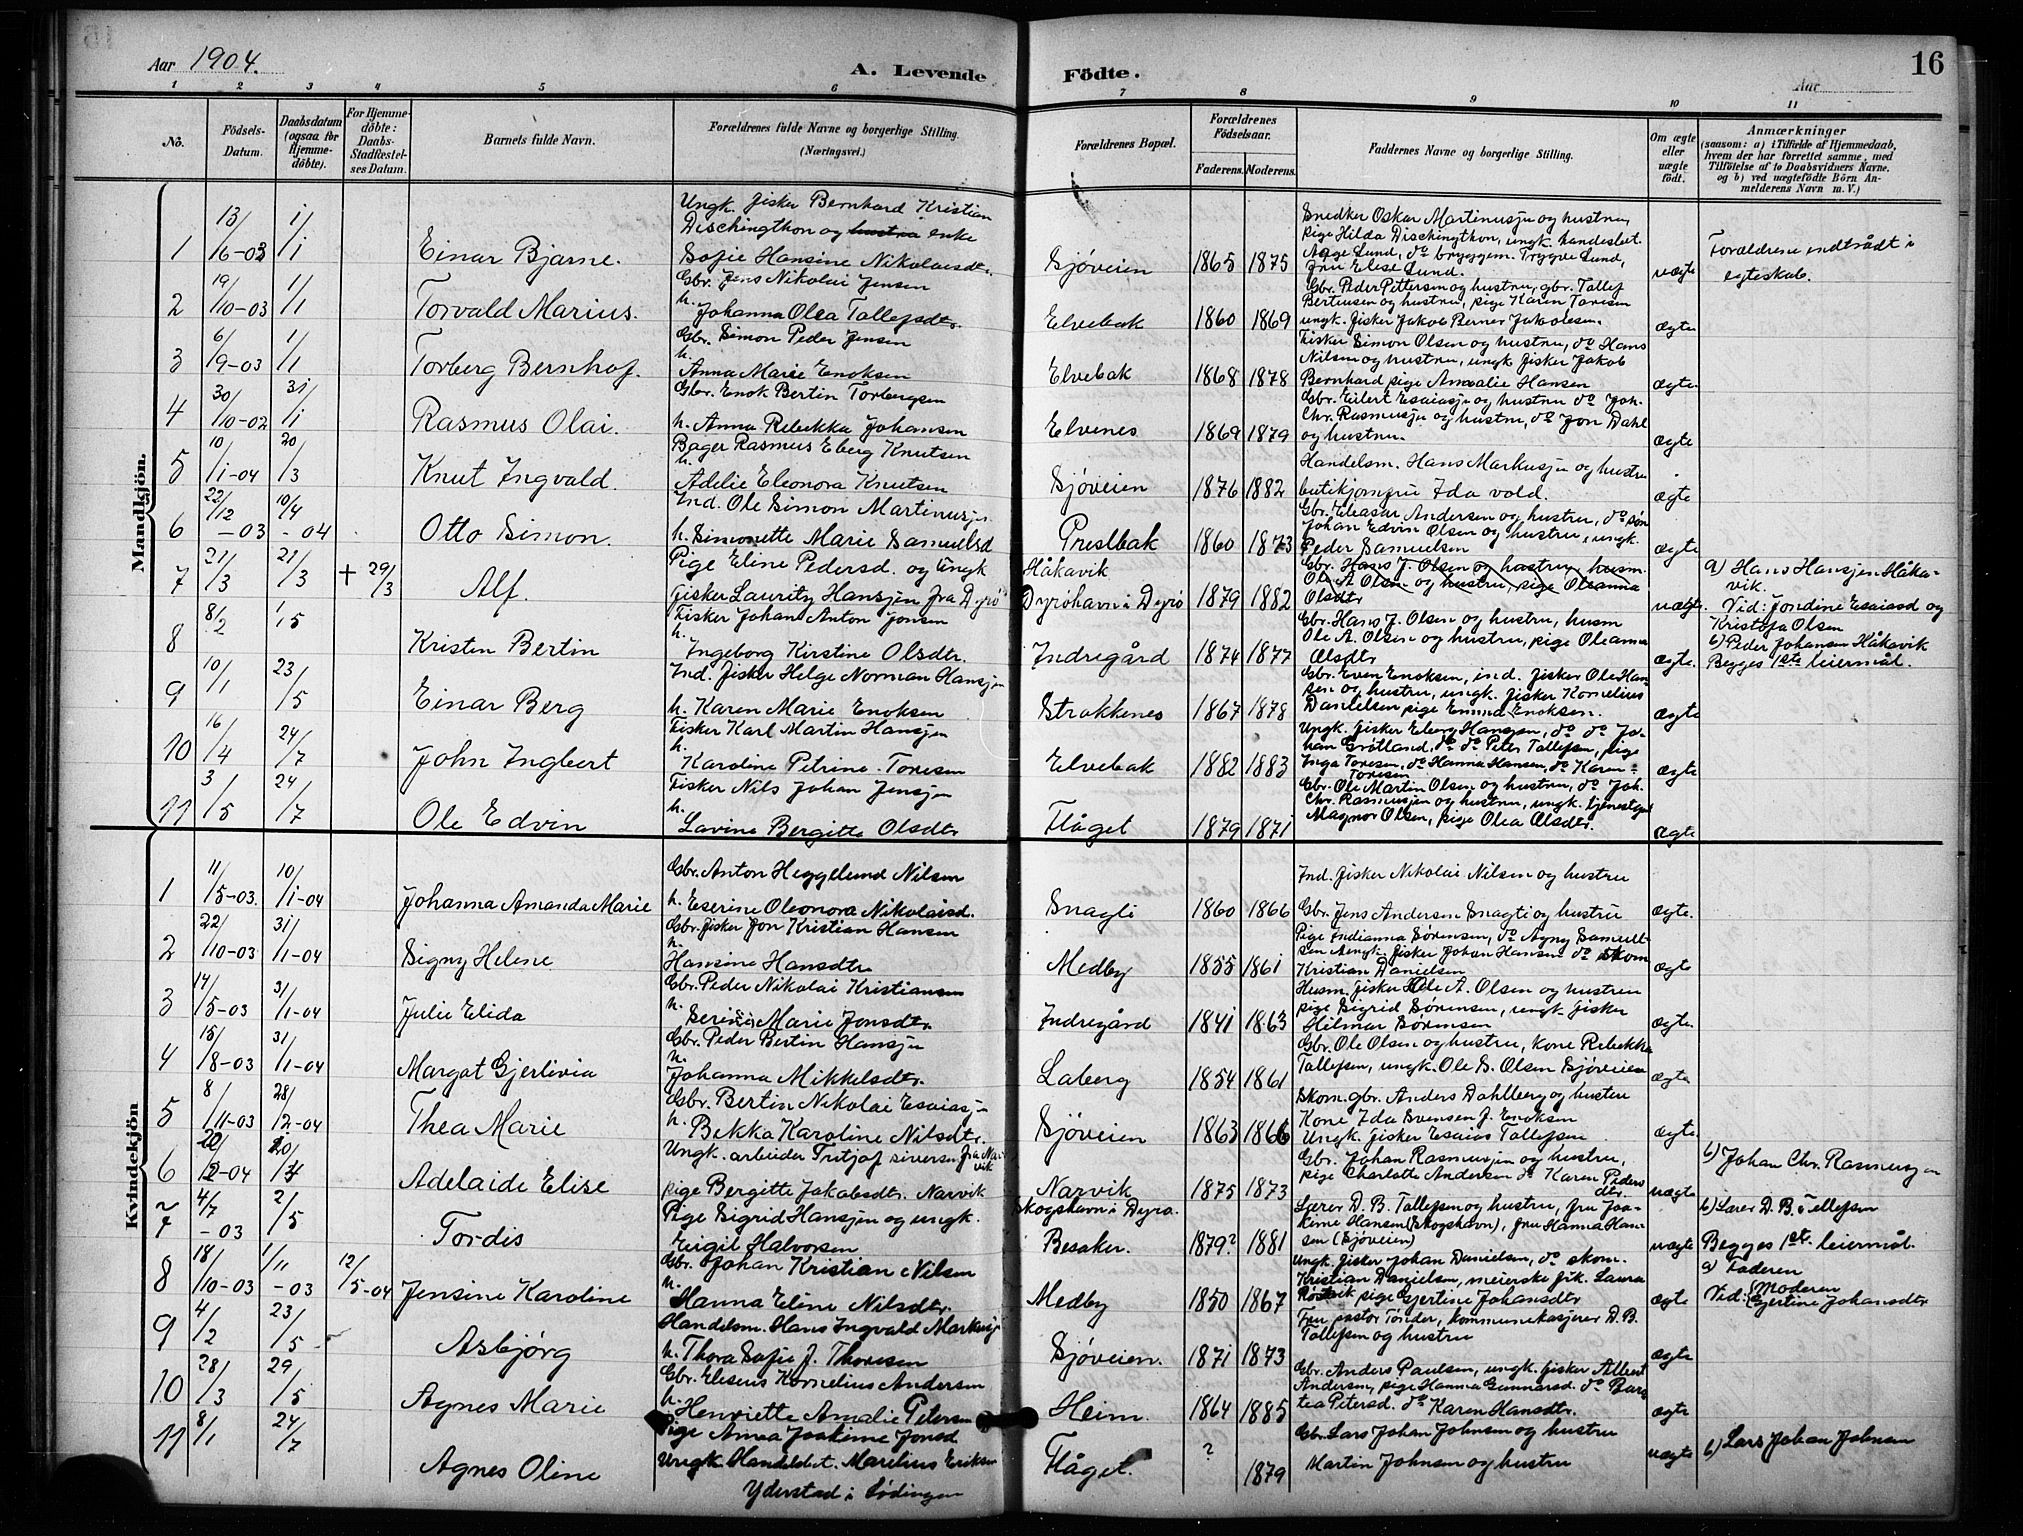 Aar 1904.
A. Levende
Födte.
Aar
16
1 2 3 4 5 6 7 8 9 10 11
No.
Födsels-Datum.
Daabsdatum (ogsaa for Hjemmedöbte).
For Hjemmedöbte: Daabs-Stadfæstelses Datum.
Barnets fulde Navn.
Forældrenes fulde Navne og borgerlige Stilling. (Næringsvei.)
Forældrenes Bopæl.
Forældrenes Födselsaar.
Faderens. Moderens.
Faddernes Navne og borgerlige Stilling.
Om ægte eller uægte födt.
Anmærkninger (saasom: a) i Tilfælde af Hjemmedaab, hvem der har forrettet samme, med Tilföielse af to Daabsvidners Navne, og b) ved uægtefödte Börn Anmelderens Navn m. V.)
Mandkjön.
Ungk. fisker Bernhard Kristian
Dischingthon og hustru enke
1 13/6-03 1/1 Einar Bjarne. Sofie Hansine Nikolaisdtr. Sjøveien 1865 1875
Snedker Oskar Martinusjn og hustru,
pige Hilda Dischingthon, ungk. handesbet.
Aage Lund, do bryggem. Trygve Lund,
Fru Elise Lund. uægte
Forældrene indtrådt i
egteskab.
Gbr. Jens Nikolai Jensen
2 19/10-03 1/1 Torvald Marius. h. Johanna Olea Tollefsdtr. Elvebak 1860 1869
Gbr. Peder Pettersen og hustru, gbr. Tollef
Bertinsen og hustru, pige Karen Toresen
ungk. fisker Jakob Berner Jakobsen. ægte
Gbr. Simon Peder Jensen
3 6/9-03 1/1 Torberg Bernhof. h. Anna Marie Enoksen Elvebak 1868 1878
Fisker Simon Olsen og hustru, do Hans
Nilsen og hustru, ungk. fisker Jakob
Bernhard pige Amalie Hansen ægte.
Gbr. Enok Bertin Torbergsen
4 30/10-02 31/1 Rasmus Olai. h. Anna Rebekka Johansen Elvenes 1869 1879
Gbr. Eilert Esaiasjn og hustru do Joh.
Chr. Rasmusjn og hustru, do Jon Dahl
og hustru. ægte
Bager Rasmus Eberg Knutsen
5 10/1-04 20/3 Knut Ingvald. h. Adelie Eleonora Knutsen Sjøveien 1876 1882
Handelsm. Hans Markusjn og hustru
butikjomfru Ida vold. ægte
Ind. Ole Simon Martinusjn.
6 22/12-03 10/4-04 Otto Simon. h. Simonette Marie Samuelsd Prestbak 1860 1873
Gbr. Eleasar Andersen og hustru, do søn
Johan Edvin Olsen og hustru, ungk.
Peder Samuelsen ægte
Pige Eline Pedersd. og Ungk Håkavik
7 21/3 21/3 + 29/3 Alf. fisker Lauritz Hansjen fra Dyrø Dyrøhavn i Dyrø 1879 1882
Gbr. Hans J. Olsen og hustru, husm.
Ole A. Olsen og hustru, pige Oleanna
Olsdtr uægte.
a) Hans Hansjen Håka-
vik.
Vid: Jondine Esaiasd og
Kristofa Olsen
b) Peder Johansen Håkavik
Begges 1ste leiermål.
Fisker Johan Anton Jonsen
8 8/2 1/5 Kristen Bertin h. Ingeborg Kirstine Olsdtr. Indregård 1874 1877
Gbr. Hans J. Olsen og hustru, husm
Ole A. Olsen og hustru, pige Oleanna
Olsdtr ægte.
Ind. fisker Helge Norman Hansjen
9 10/1 23/5 Einar Berg h. Karen Marie Enoksen Strokkenes 1867 1878
Gbr. Even Enoksen, ind. fisker Ole Han-
sen og hustru, ungk. fisker Kornelius
Danielsen pige Emma Enoksen. ægte
Fisker Karl Martin Hansjn
10 16/4 24/7 John Ingbert h. Karoline Petrine Toresen Elvebak 1882 1883
Ungk. fisker Eberg Hansen, do do Jo-
han Grøtland, do do Peter Tollefsen, pige
Inga Toresen, do Hanna Hansen, do Karen
Toresen ægte
Fisker Nils Johan Jensjn
11 3/5 24/7 Ole Edvin h. Lavine Bergitte Olsdtr Flåget 1879 1871
Gbr. Ole Martin Olsen og hustru, do Joh.
Chr. Rasmusjen og hustru, ungk. tjenestgut
Magnor Olsen, pige Olea Olsdtr. ægte
Kvindekjön
Gbr. Anton Heggelund Nilsen
1 11/5-03. 10/1-04 Johanna Amanda Marie h. Eserine Oleonora Nikolaisd. Snagti 1860 1866
Ind. fisker Nikolai Nilsen og hustru
Gbr. Jens Andersen Snagti og hustru ægte.
Gbr. fisker Jon Kristian Hansen
2 22/10-03 31/1-04 Signy Helene h. Hansine Hansdtr Medby 1855 1861
Pige Indianna Sørensen, do Agny Samuel-
sen ungk. fisker Johan Hansen do skom
Kristian Danielsen ægte
Gbr. Peder Nikolai Kristiansen
3 14/5-03 31/1-04 Julie Elida h. Serine Marie Jonsdtr. Indregård 1841 1863
Husm. fisker Ole A. Olsen og hustru
pige Sigrid Sørensen, ungk. fisker
Hilmar Sørensen ægte.
Gbr. Peder Bertin Hansjn
4 15/8-03 31/1-04 Margot Gjerlivia h. Johanna Mikkelsdtr. Laberg 1854 1861
Gbr. Ole Olsen og hustru, kone Rebekka
Tollefsen, ungk. Ole S. Olsen Sjøveien ægte
Gbr. Bertin Nikolai Esaiasjn
5 8/11-03 28/2-04 Thea Marie h. Bekka Karoline Nilsdtr. Sjøveien 1863 1866
Skom. gbr. Anders Dahlberg og hustru
Kone Ida Svensen f. Enoksen
Ungk. fisker Esaias Tollefsen ægte
Ungk. arbeider Fritjof Siversen fra Nar
vik
6 20/2-04 20/4 Adelaide Elise pige Bergitte Jakobsdtr. Narvik Narvik 1875 1873
Gbr. Johan Rasmusjen og hustru,
pige Charlotte Andersen do Karen Peders
dtr. uægte
b) Johan Chr. Rasmusjn
Pige Sigrid Hansjen og ungk. Skogshavn i Dyrø.
7 4/7-03 2/5 Tordis Eirgil Halvorsen Besaker. 1879? 1881
Lærer D. B. Tollefsen og hustru, fru Joa-
kime Hansen (Skogshavn), fru Hanna Han-
sen (Sjøveien) uægte
b) Lærer D. B. Tollefsen
Begges 1ste leiermål.
Gbr. Johan Kristian Nilsen
8 18/10-03 1/11-03 12/5-04 Jensine Karoline h. Hanna Eline Nilsdtr. Medby 1850 1867
Ungk. fisker Johan Danielsen, do skom.
Kristian Danielsen, meierske frk. Laura
pige Gjertine Johansdtr ægte
a) Faderen
Vid: Moderen
Gjertine Johansdtr
Handelsm. Hans Ingvald Markusjn
9 4/2 23/5 Asbjørg h. Thora Sofie J. Thoresen Sjøveien. 1871 1873
Fru pastor Tønder, kommunekasjerer D. B.
Tollefsen og hustru ægte
Gbr. Elesius Kornelius Andersen
10 28/3 29/5 Agnes Marie h. Henriette Amalie Petersen Heim. 1864 1885
Gbr. Anders Paulsen, ungk. fisker Albert
Andersen, pige Hanna Gunnarsd. do Bare
tea Petersd. do Karen Hansdtr. ægte
Pige Anna Joakime Jonsd
11 8/1 24/7 Agnes Oline Ungk. Handelsbet. Marelius Eriksen Flåget. ? 1879
Yderstad i Lødingen
Gbr. Lars Johan Johnsen og hustru
Martin Johnsen og hustru uægte
b) Lars Johan Johnsen